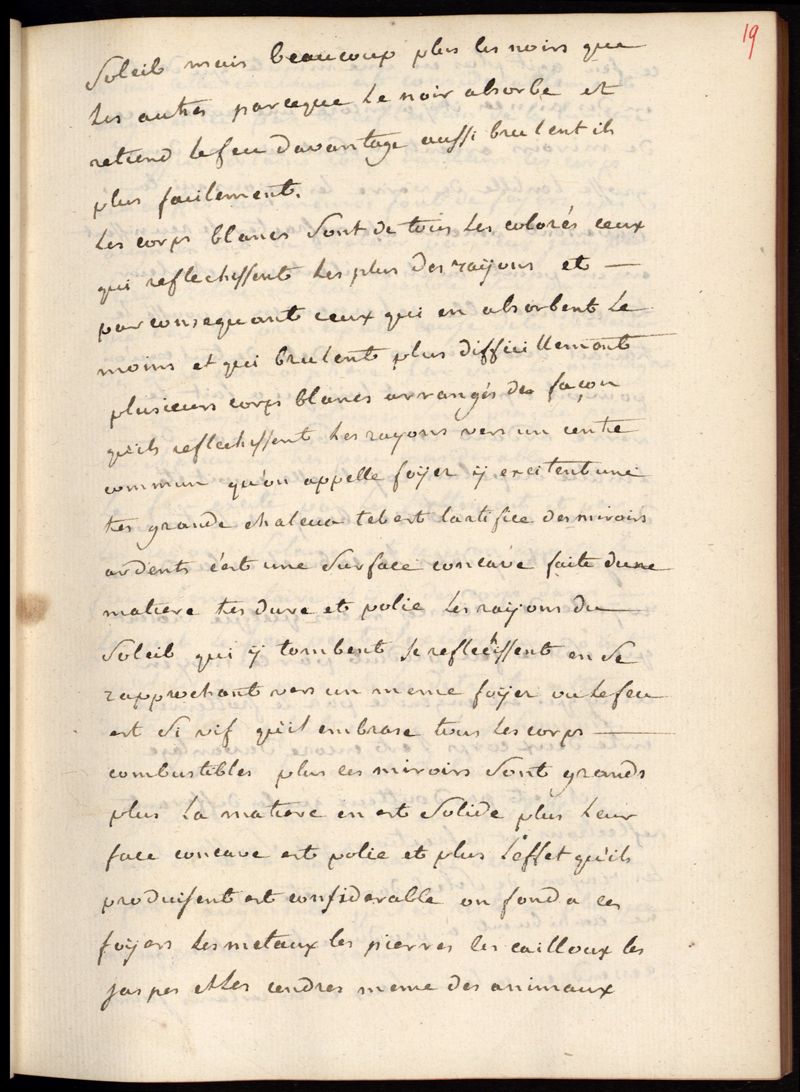 19
Soleil mais beaucoup plus les noirs que
les autres parceque le noir absorbe et
retiend le feu davantage aussi brulent ils
plus facilement.
Les corps blancs sont de tous les colorés ceux
qui reflechissent les plus des raÿons et —
par consequant ceux qui en absorbent le
moins et qui brulent plus difficillement
plusieurs corps blancs arrangés de façon
qu'ils reflechissent les rayons vers un centre
commun qu'on appelle foÿer ÿ excitent une
tres grande chaleur tel est lartifice des miroirs
ardents c'est une surface concave faite dune
matiere tres dure et polie les raÿons du
Soleil qui ÿ tombent se reflechissent en se
rapprochant vers un meme foÿer ou le feu
est si vif qu'il embrase tous les corps —
combustibles plus ces miroirs sont grands
plus la matiere en est solide plus leur
face concave est polie et plus l'effet qu'ils
produisent est considerable on fond a ces
foÿers les metaux les pierres les cailloux les
jaspes et les cendres meme des animaux